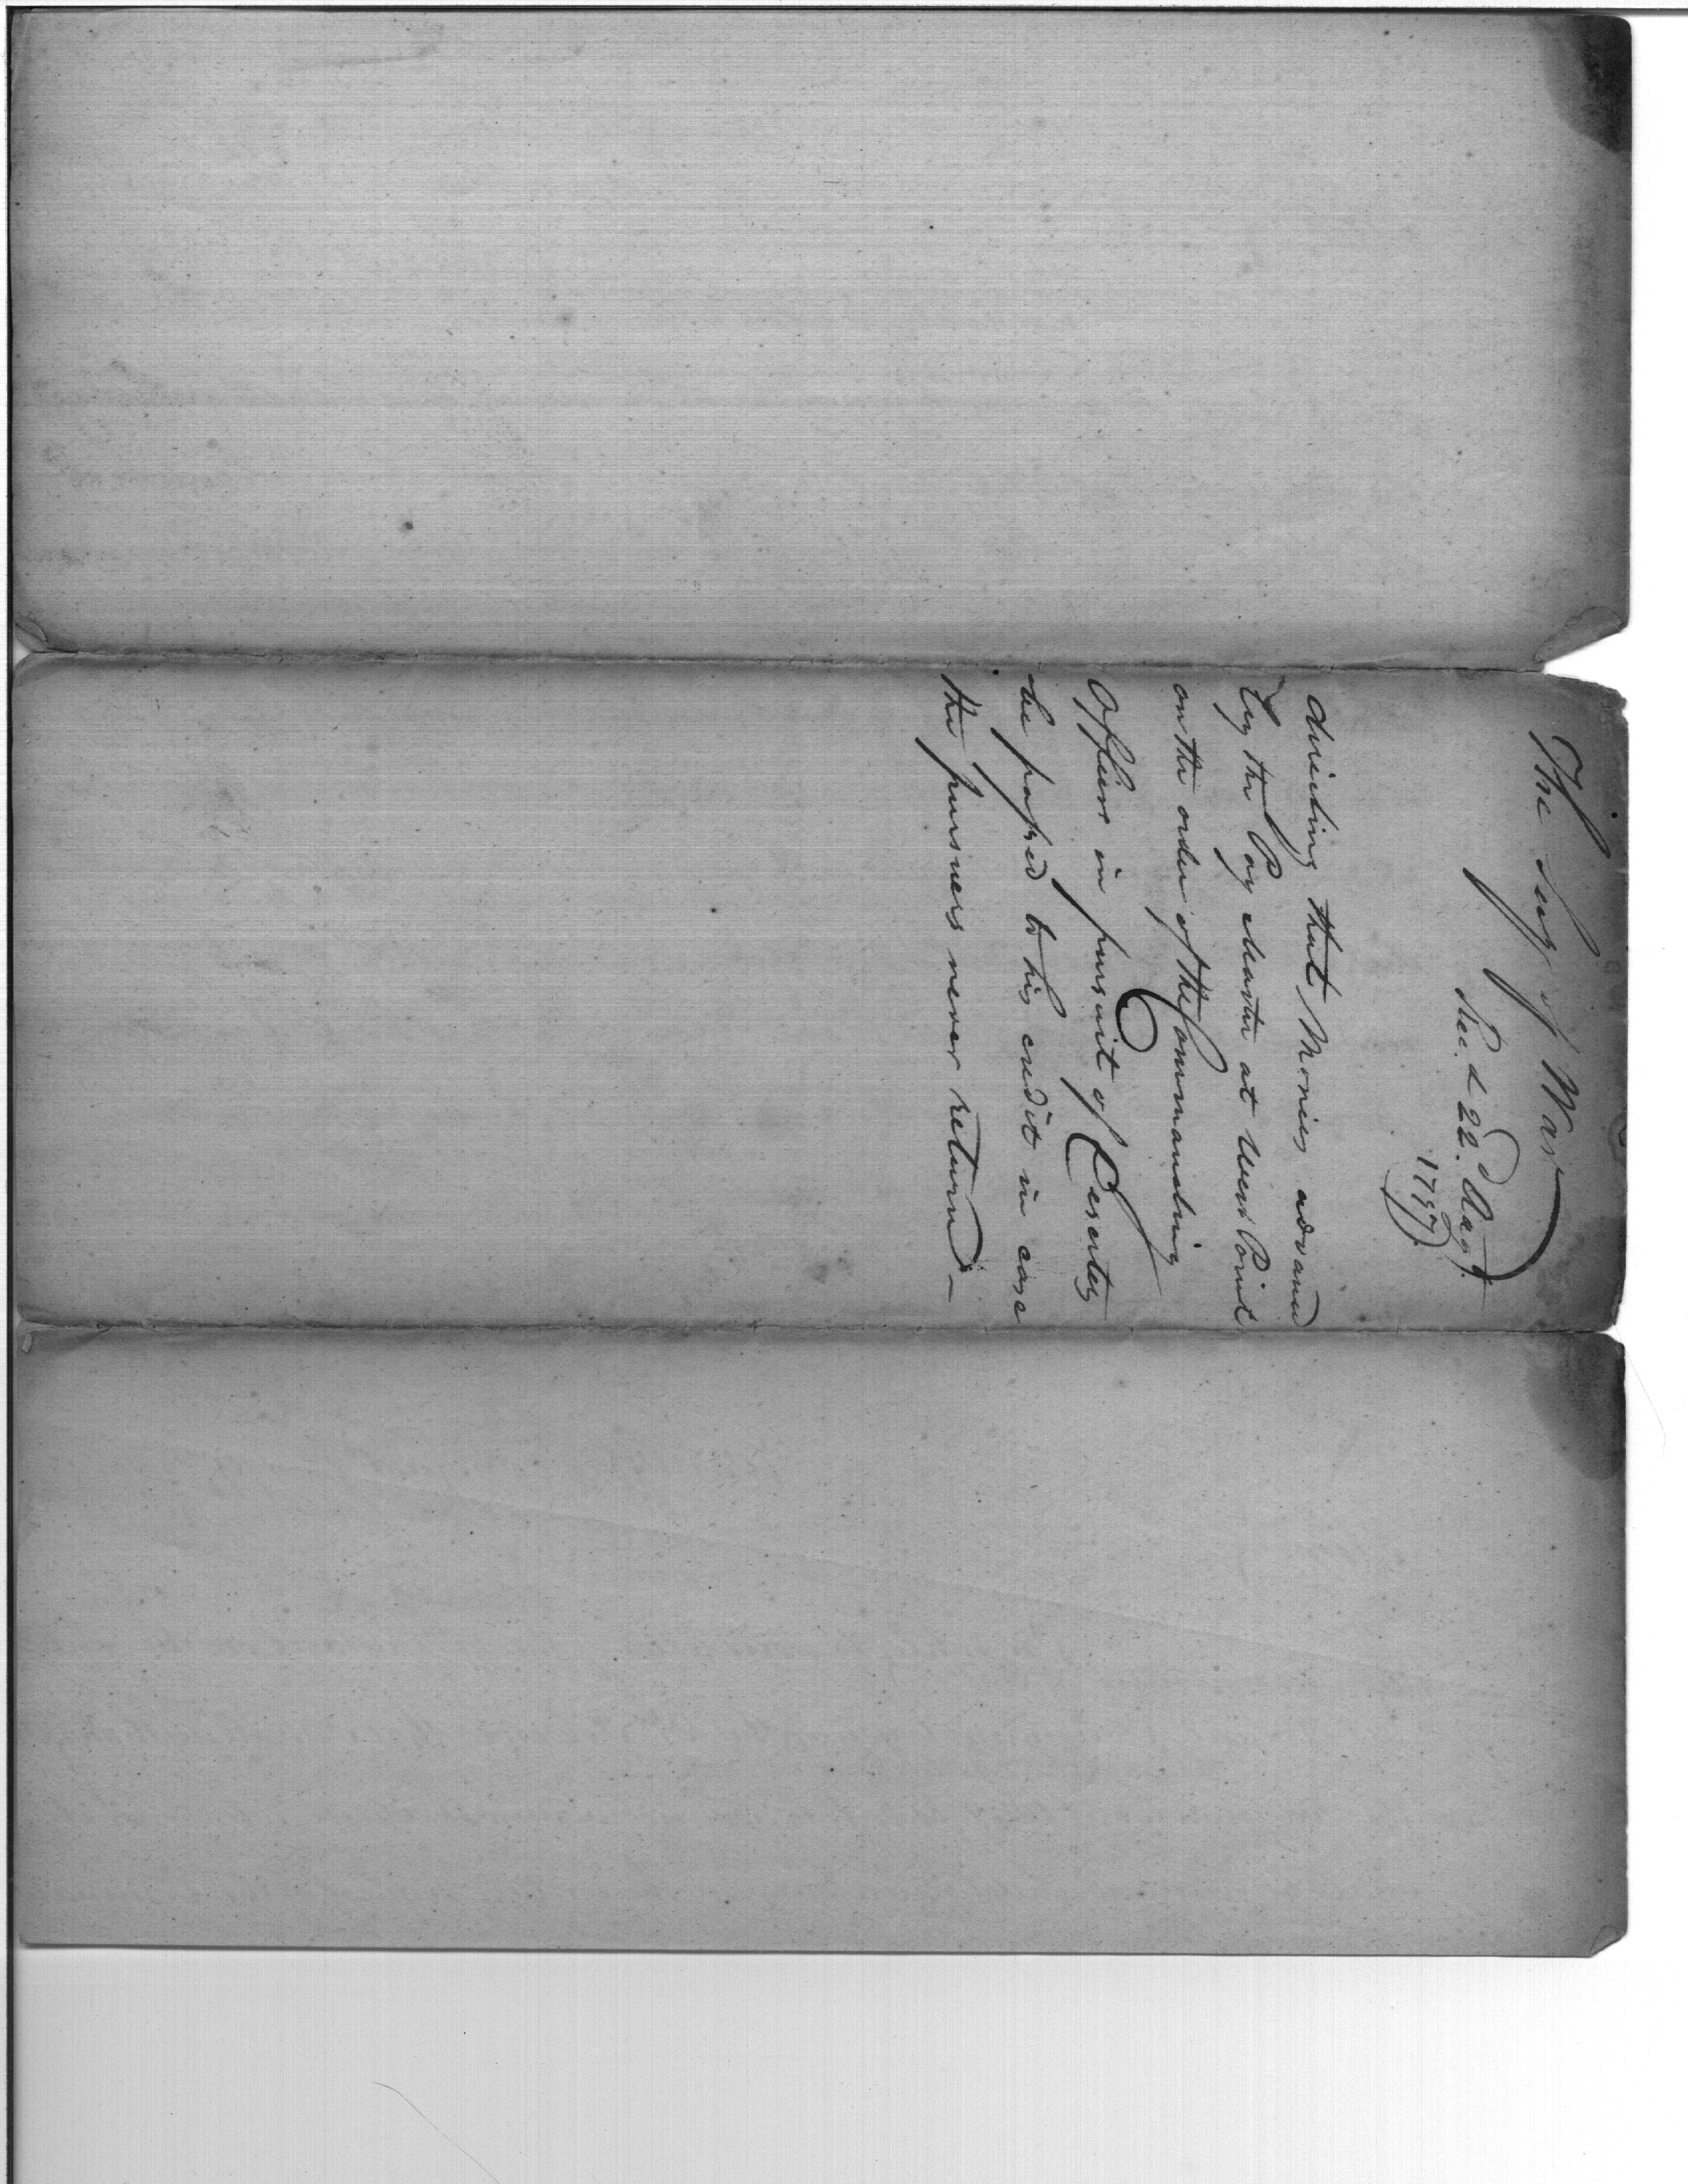 The Secy of War
Rec.d 22.d Augt.
1797
directing that Monies advanced
by the Pay Master at West Point
on the order of the Commanding
Officer in pursuit of Deserters
be passed to his credit in case
the pursuers never return—